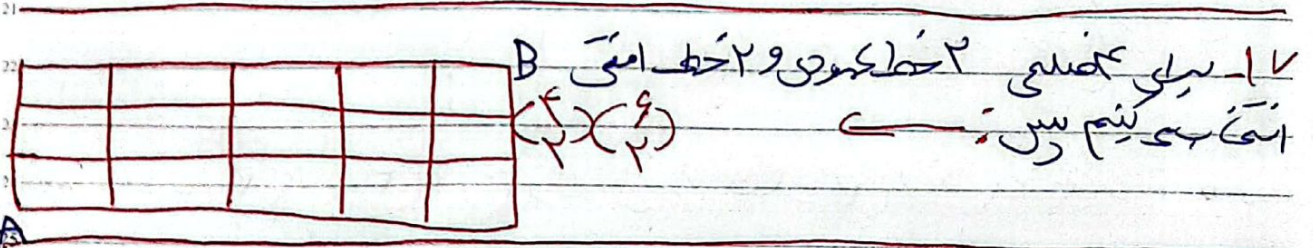 ۱۷- برای ۴ضلعی ۲ خط عمودی و ۲ خط افقی
انتخاب می کنیم پس: ←
(۴ ۲)(۶ ۲)
B
A
21
22